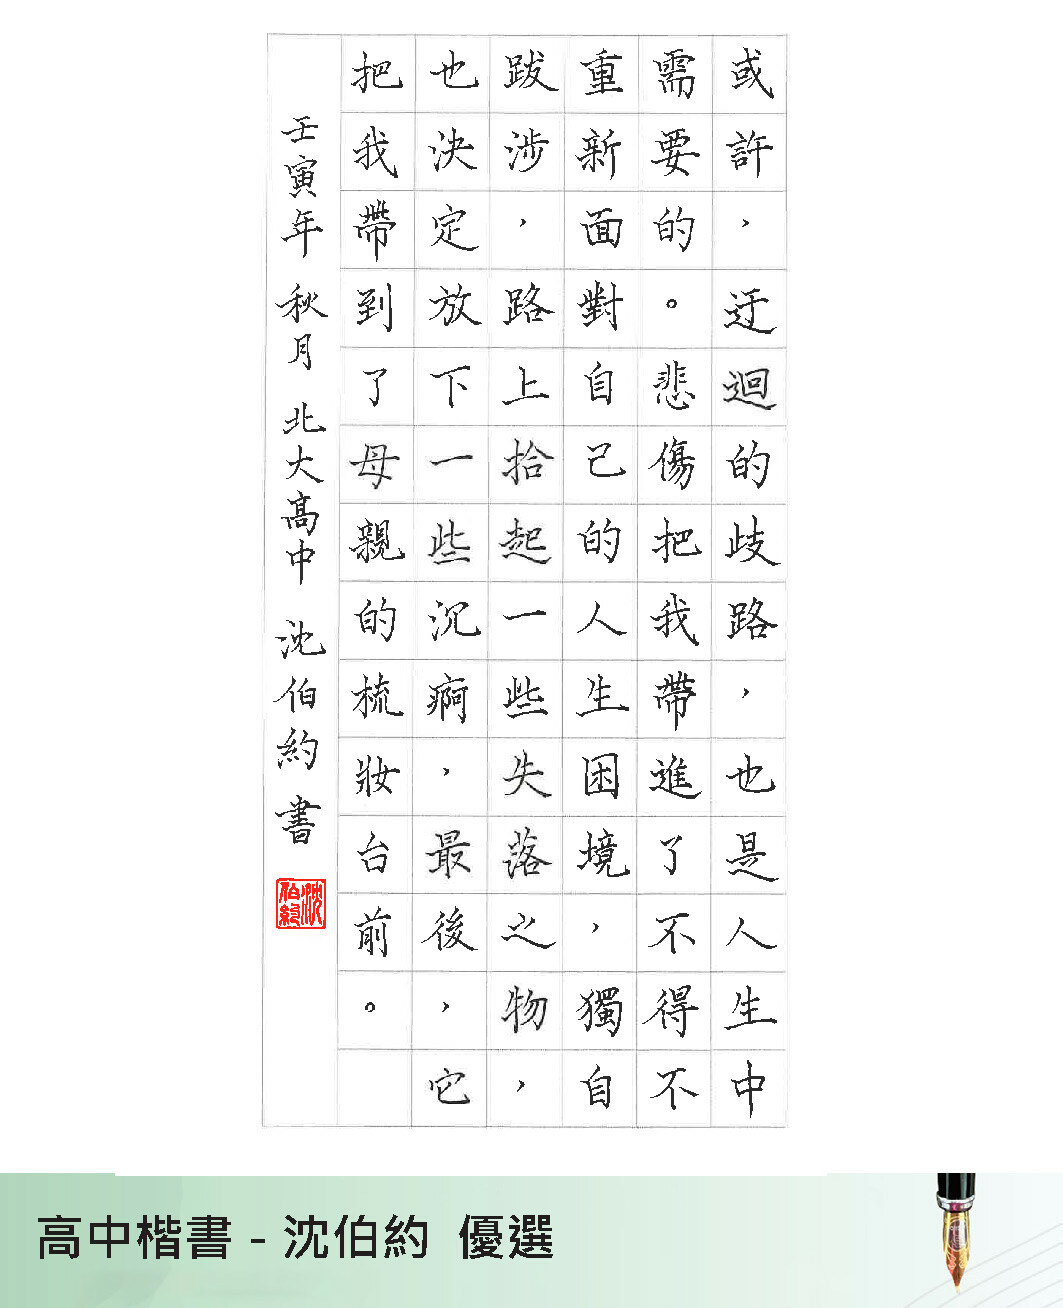 或許，迂迴的歧路，也是人生中
需要的。悲傷把我帶進了不得不
重新面對自己的人生困境，獨自
跋涉，路上拾起一些失落之物，
也決定放下一些沉痾，最後，它
把我帶到了母親的梳妝台前。
壬寅年 秋月 北大高中 沈伯約 書
沈伯約
高中楷書 - 沈伯約 優選